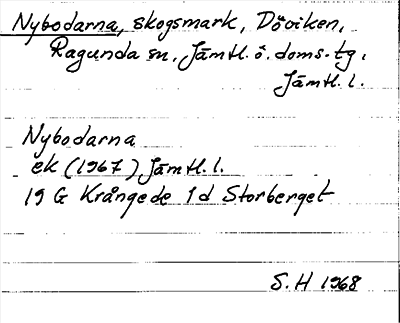 Nybodarna, skogsmark, Döviken,
Ragunda sn, Jämtl. ö. doms.-tg.
Jämtl. l.
Nybodarna
ek (1967) Jämtl. l.
19 G Krångede 1d Storberget
S. H 1968